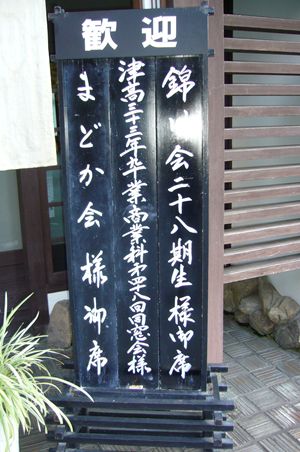 歓迎
錦川会二十八期生様御席
津高三十三年卆業商業科才四十八回同窓会様
まどか会様御席